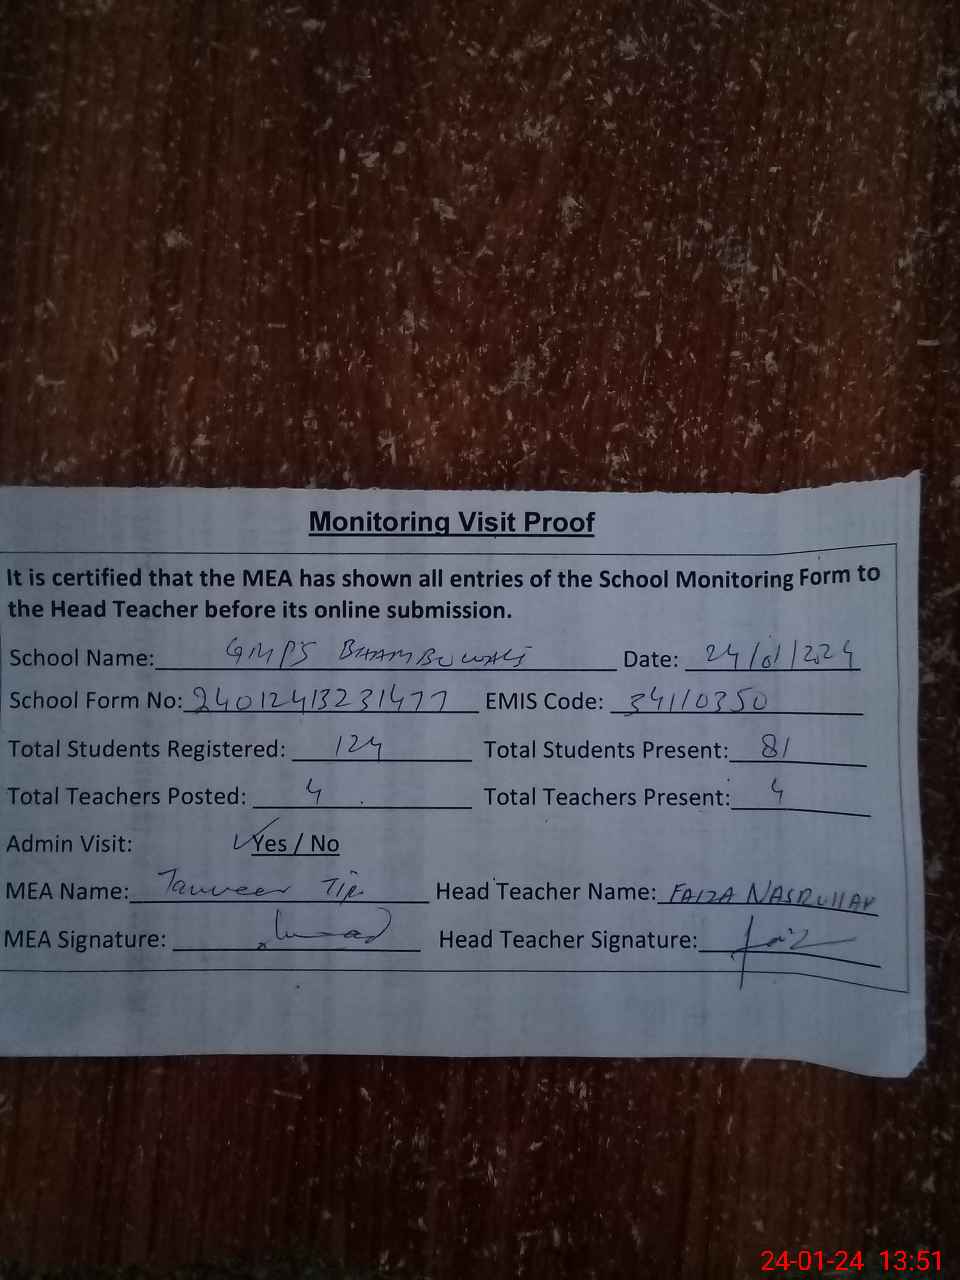 Monitoring Visit Proof
It is certified that the MEA has shown all entries of the School Monitoring Form to
the Head Teacher before its online submission.
School Name: GMPS BHAMBUWALI Date: 24/01/2024
School Form No: 24012413231477 EMIS Code: 34110350
Total Students Registered: 124 Total Students Present: 81
Total Teachers Posted: 4 Total Teachers Present: 4
Admin Visit: ✓Yes / No
MEA Name: Tanveer Head Teacher Name: FAIZA NASRULLAH
MEA Signature: Head Teacher Signature:
24-01-24 13:51